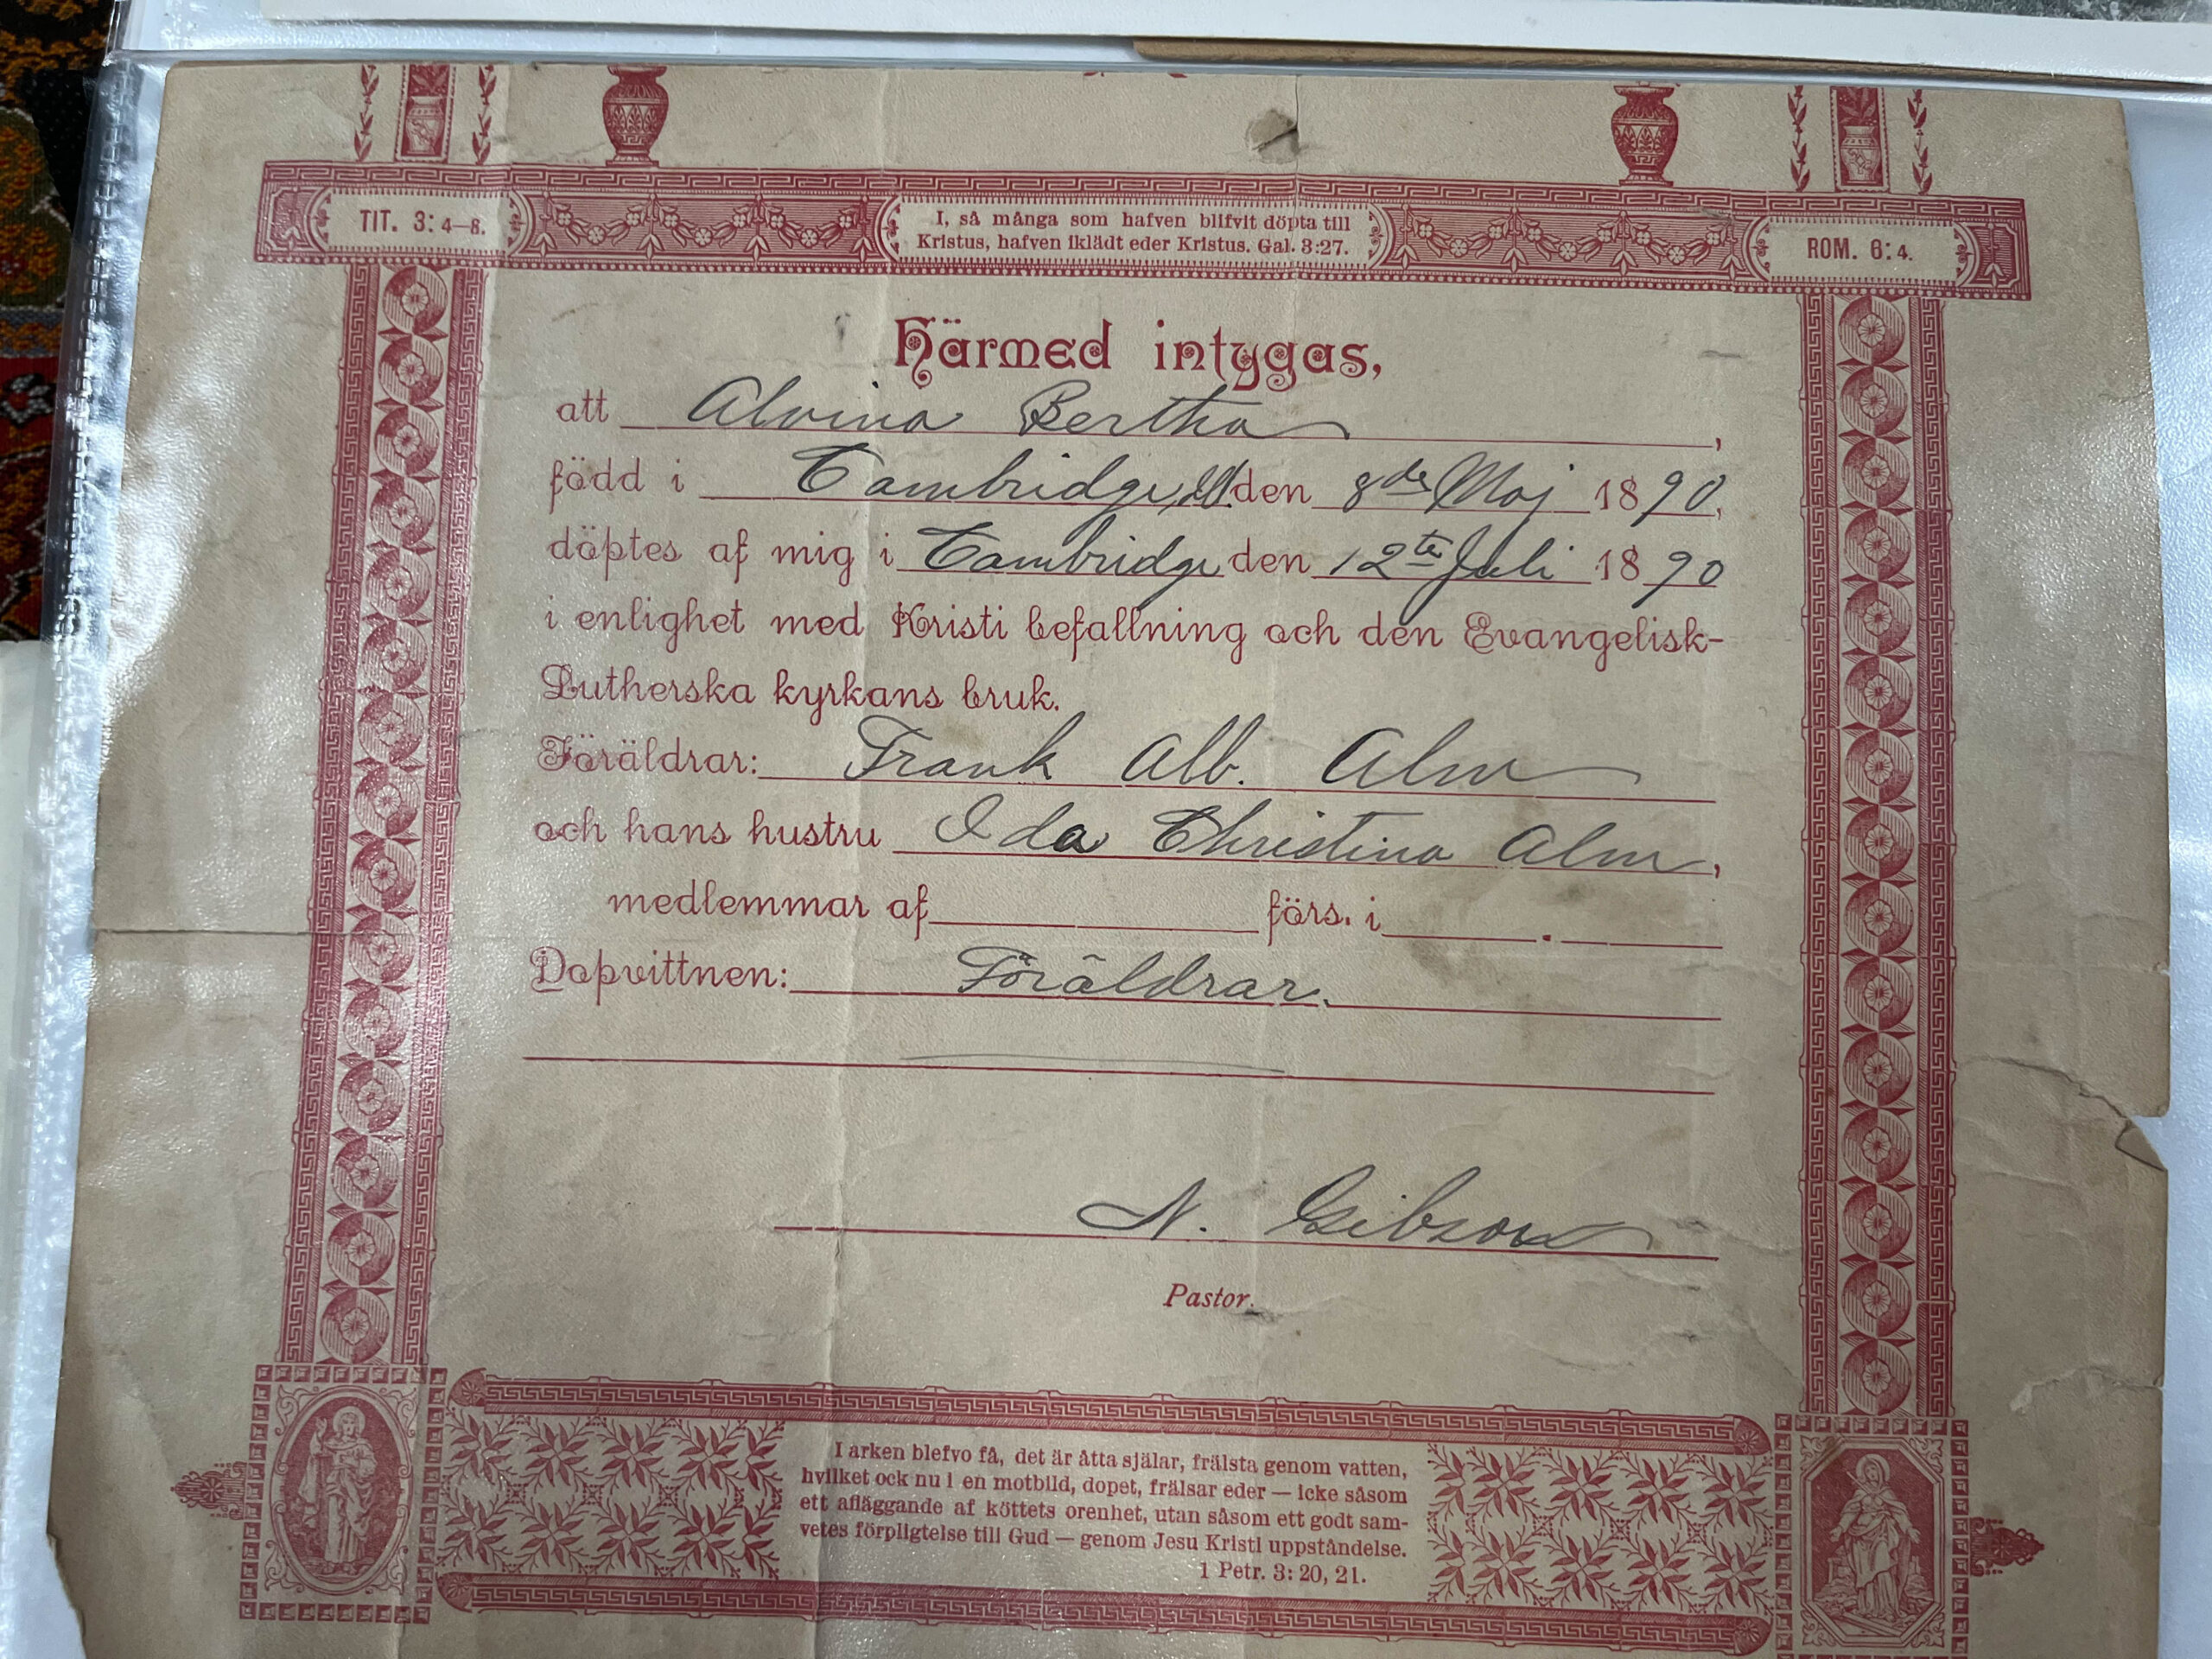 TIT. 3:4—8.
I, så många som hafven blifvit döpta till
Kristus, hafven iklädt eder Kristus. Gal. 3:27.
ROM. 6:4.
Härmed intygas,
att Alvina Bertha,
född i Cambridge, Ill. den 8de Maj 1890,
döptes af mig i Cambridge den 12te Juli 1890
i enlighet med Kristi befallning och den Evangelisk-
Lutherska kyrkans bruk.
Föräldrar: Frank Alb. Alm
och hans hustru Ida Christina Alm,
medlemmar af förs. i
Dopvittnen: Föräldrar.
N. Gibson
Pastor.
I arken blefvo få, det är åtta själar, frälsta genom vatten,
hvilket ock nu i en motbild, dopet, frälsar eder — icke såsom
ett afläggande af köttets orenhet, utan såsom ett godt sam-
vetes förpligtelse till Gud — genom Jesu Kristi uppståndelse.
1 Petr. 3:20, 21.